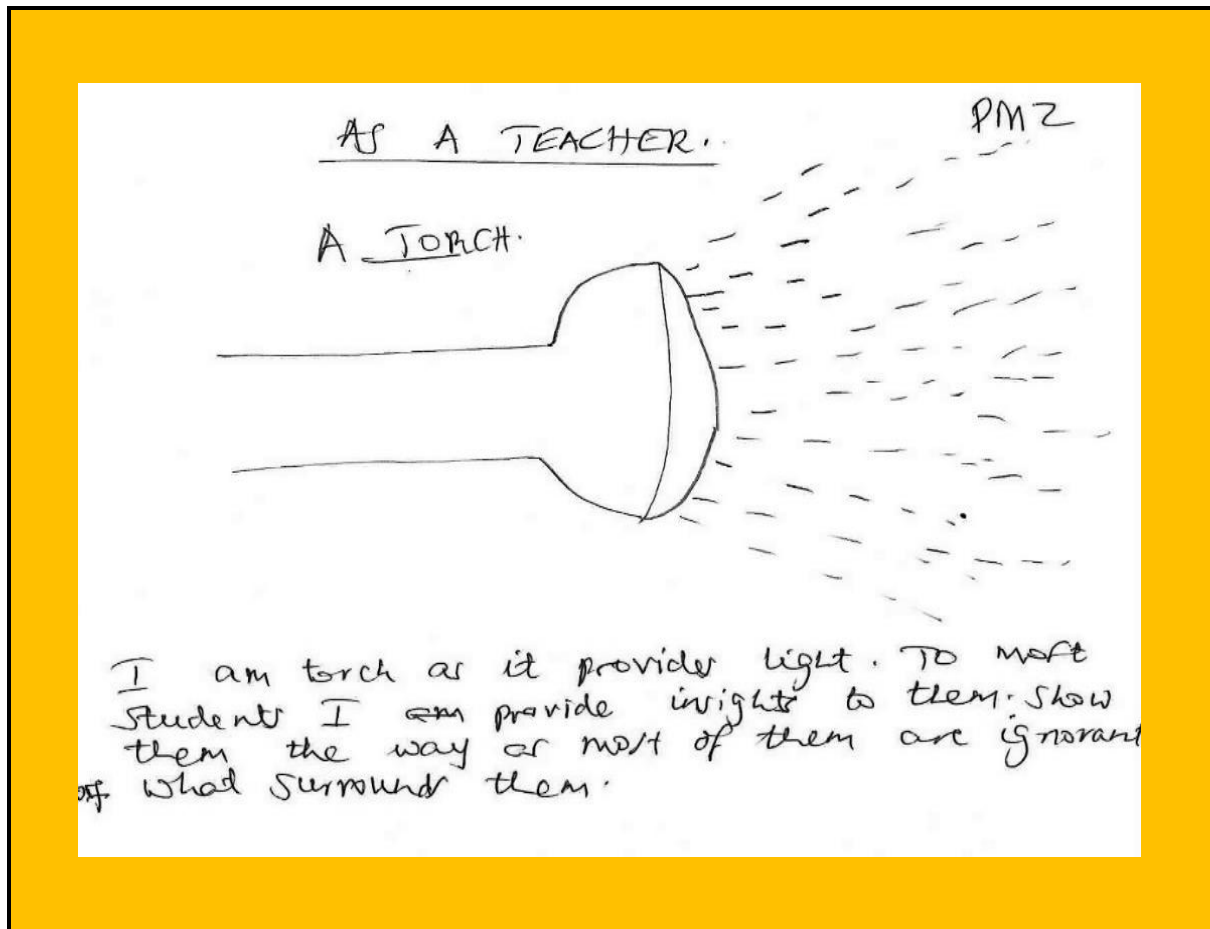 AS A TEACHER.
PM2
A TORCH.
I am torch as it provides light. To most
students I provide insights to them. show
them the way as most of them are ignorant
of what surrounds them.